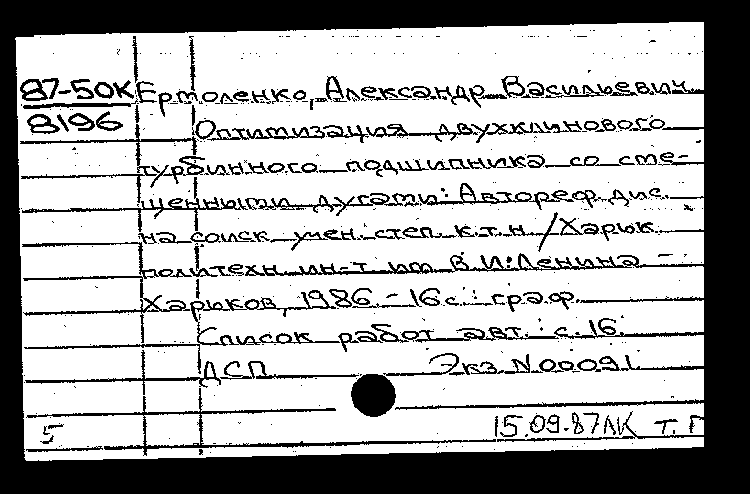 87-50К Ертоленко, Александр Васильевич
8196 Оптимизация двухклинового
турбинного подшипника со сме-
щенными дугами: Автореф. дис.
на соиск учен. степ. к.т.н. /Харьк.
политехн. ин-т им. В.И.Ленина –
Харьков, 1986. – 16с.: граф.
Список работ авт.: с. 16.
ДСП Экз N00091
5 15.09.87ЛК Т. Г